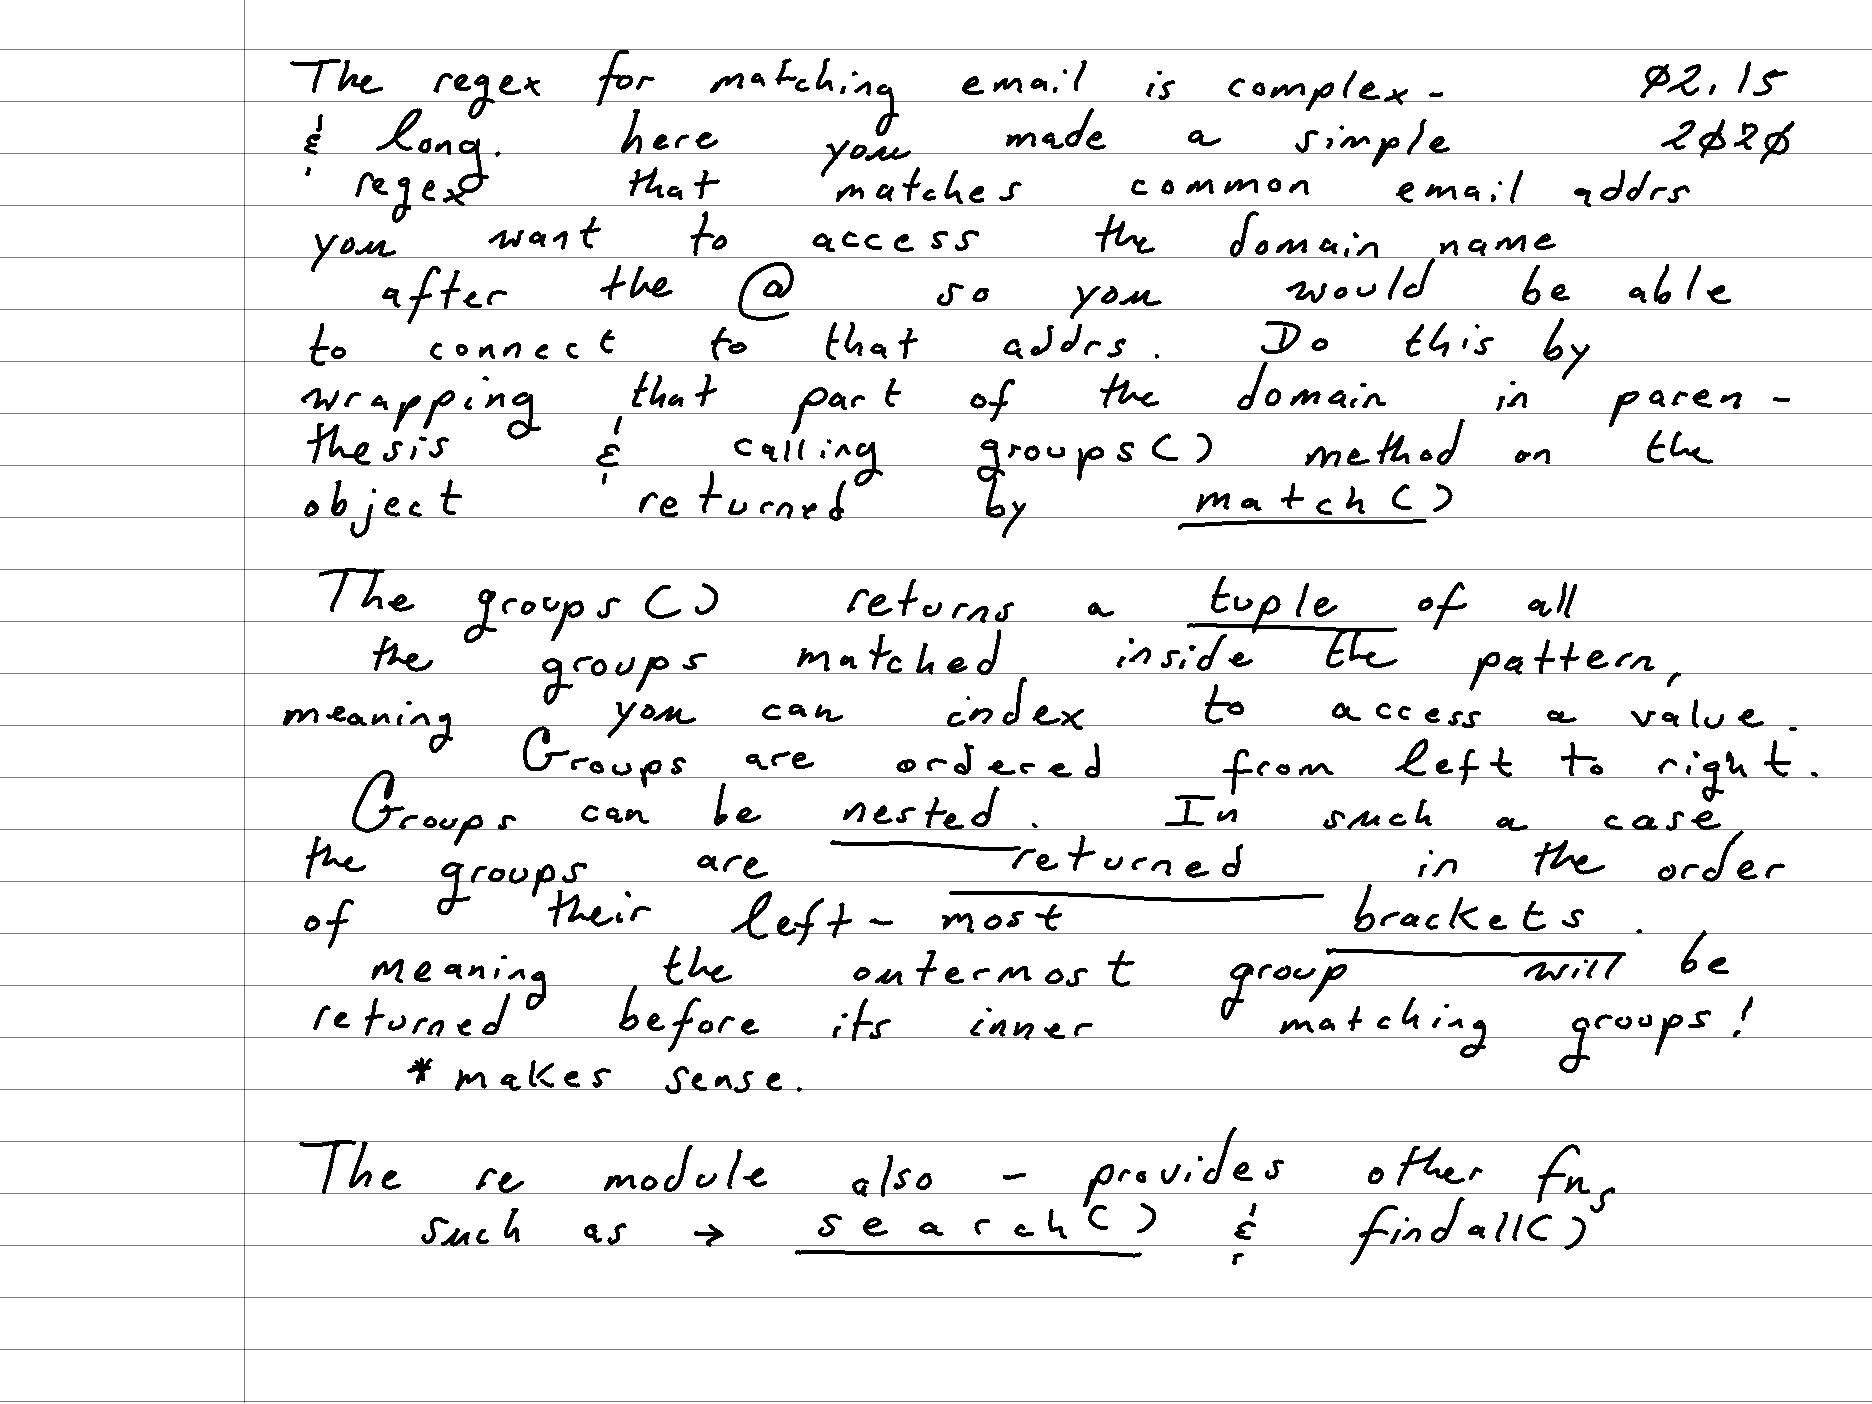 The regex for matching email is complex - 02.15
& long. here you made a simple 2020
regex that matches common email addrs
you want to access the domain name
after the @ so you would be able
to connect to that addrs. Do this by
wrapping that part of the domain in paren -
thesis & calling groups() method on the
object returned by match()
The groups() returns a tuple of all
the groups matched inside the pattern,
meaning you can index to access a value.
Groups are ordered from left to right.
Groups can be nested. In such a case,
the groups are returned in the order
of their left - most brackets.
meaning the outermost group will be
returned before its inner matching groups!
* makes sense.
The re module also - provides other fns
such as → search() & findall()